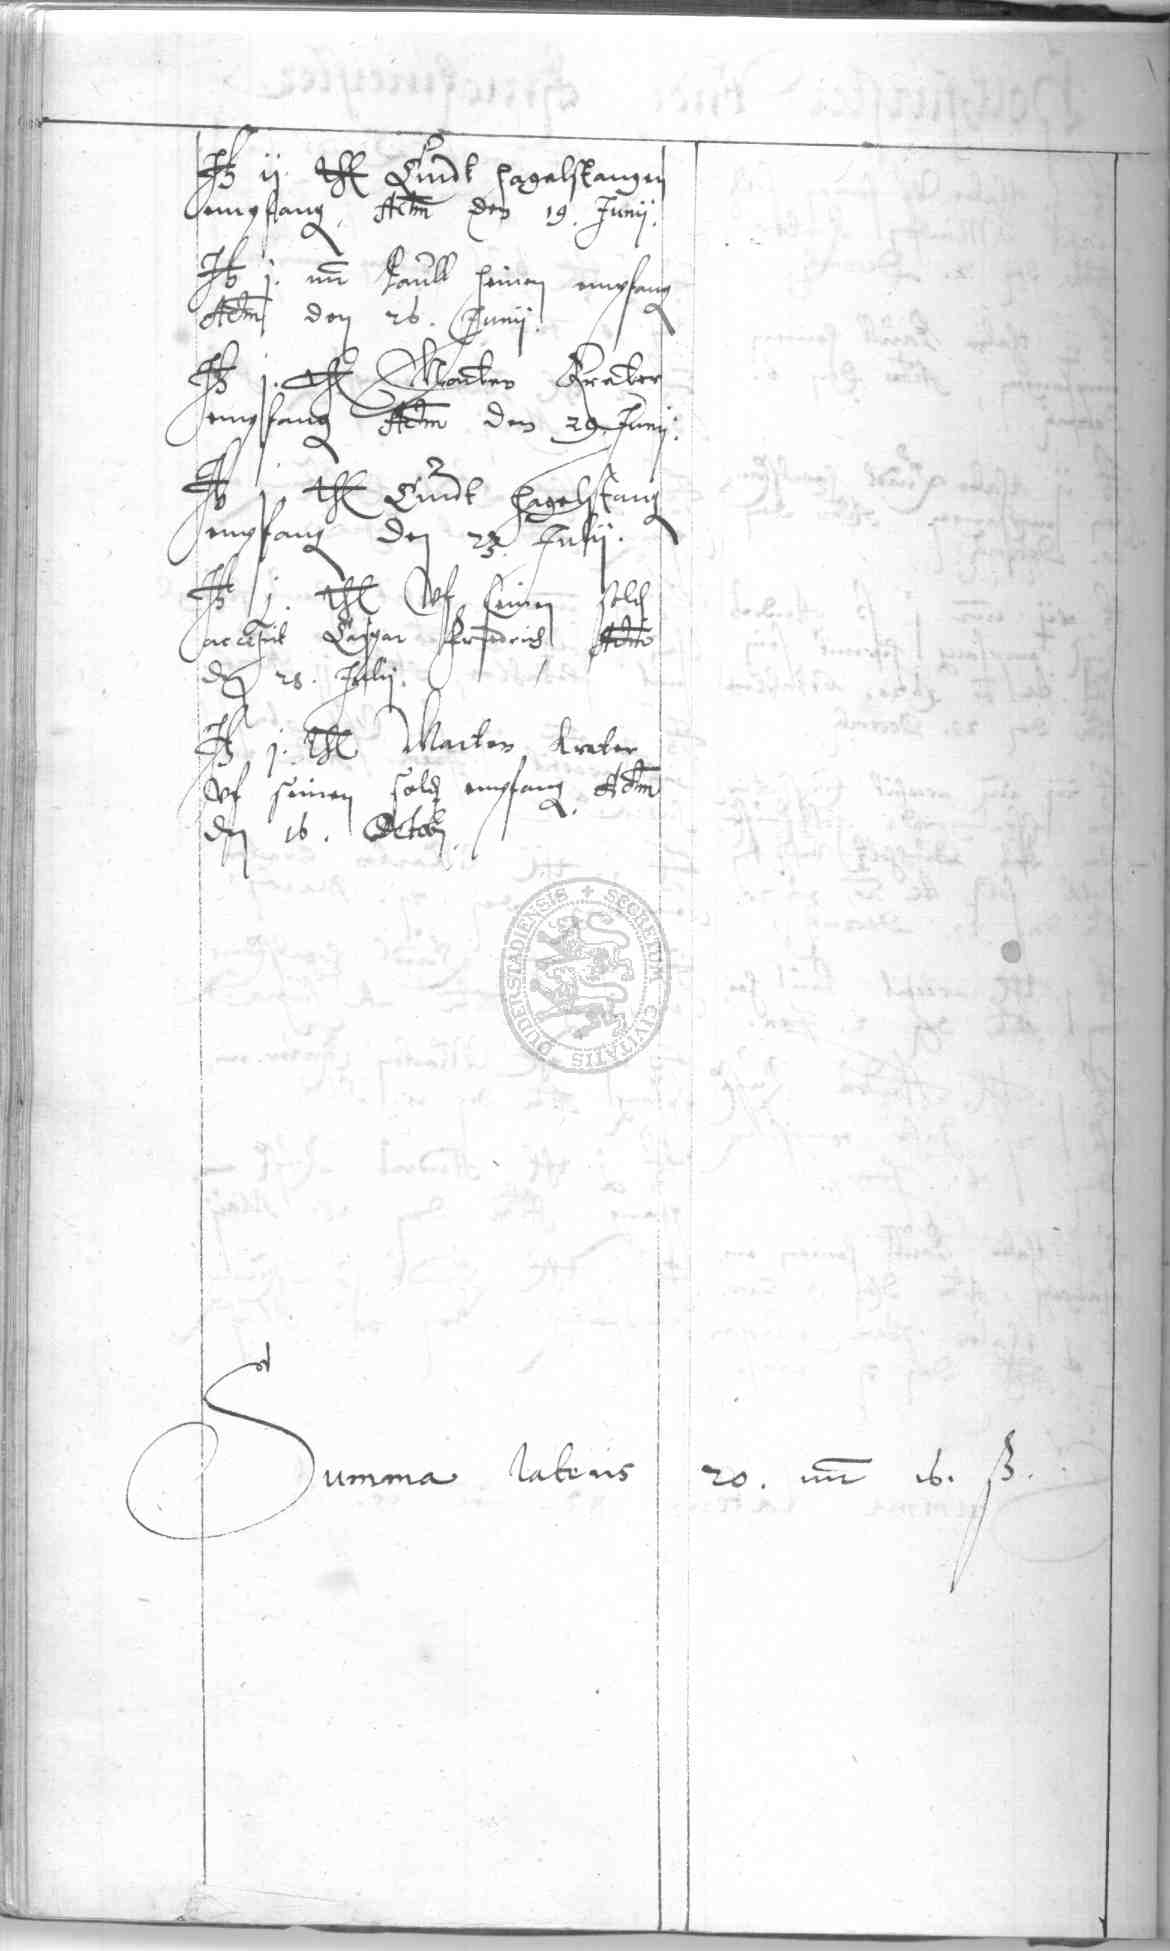 It ij thl Curdt Hagelstangen
empfang Actum den 19. Junij.
It j. mr Paull Heinen empfang
Actum den 26. Junij.
It j. thl Marten Krater
empfang Actum den 29. Junij.
It j thl Curdt Hagelstang
empfang den 23. Julij.
It j. thl vf seinen solt
accepit Caspar Friedrich Actum
den 28. Julij.
It j. thl Marten Krater
vf seinen solt empfang Actum
den 16. Octob
SECRETUM CIVITATIS DUDERSTADIENSIS
Summa lateris 20. mr 16. ß.